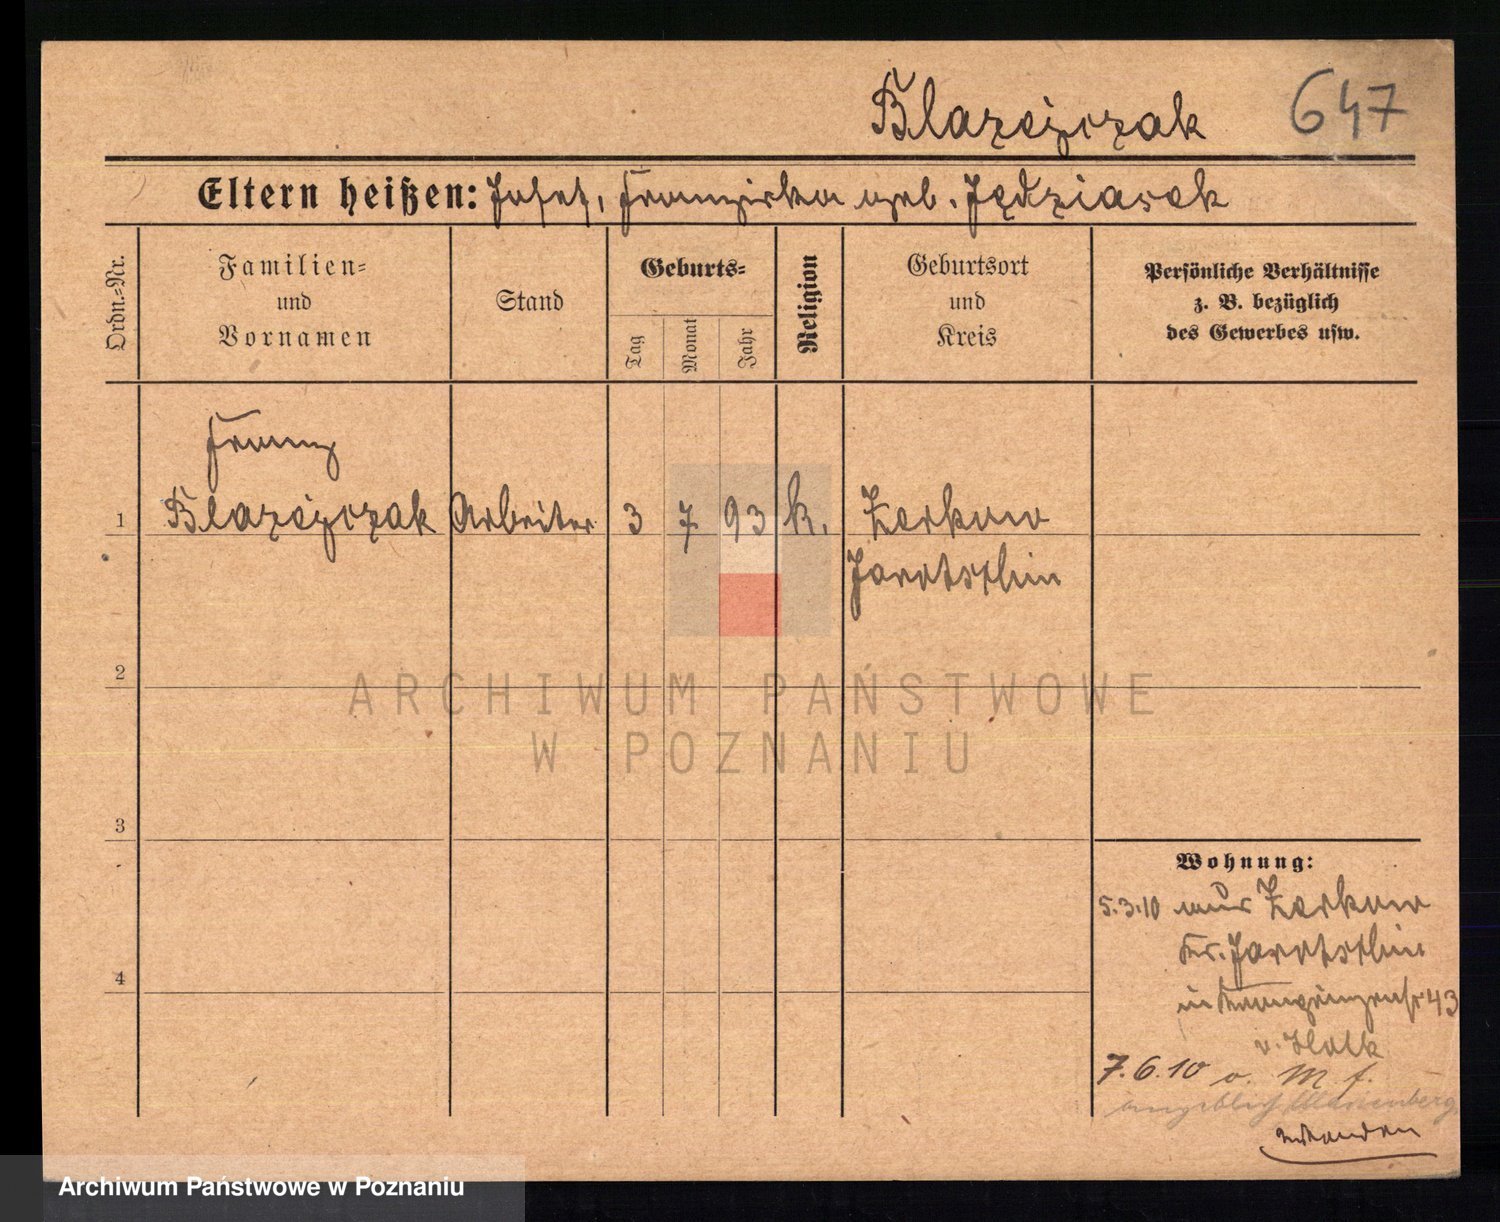 Blazejczak 647
Eltern heißen: Josef, Franziska geb. Jędziasek
Ordn.-Nr.
Familien-
und
Vornamen
Stand
Geburts-
Tag
Monat
Jahr
Religion
Geburtsort
und
Kreis
Persönliche Verhältnisse
z. B. bezüglich
des Gewerbes usw.
Franz
1 Blazejczak Arbeiter 3 7 93 k. Zerkow
Jarotschin
2
ARCHIWUM PAŃSTWOWE
W POZNANIU
3
Wohnung:
5.3.10 aus Zerkow
Kr. Jarotschin
4
in Kronprinzenstr 43
v.
7.6.10 o. M f.
angeblich
Archiwum Państwowe w Poznaniu